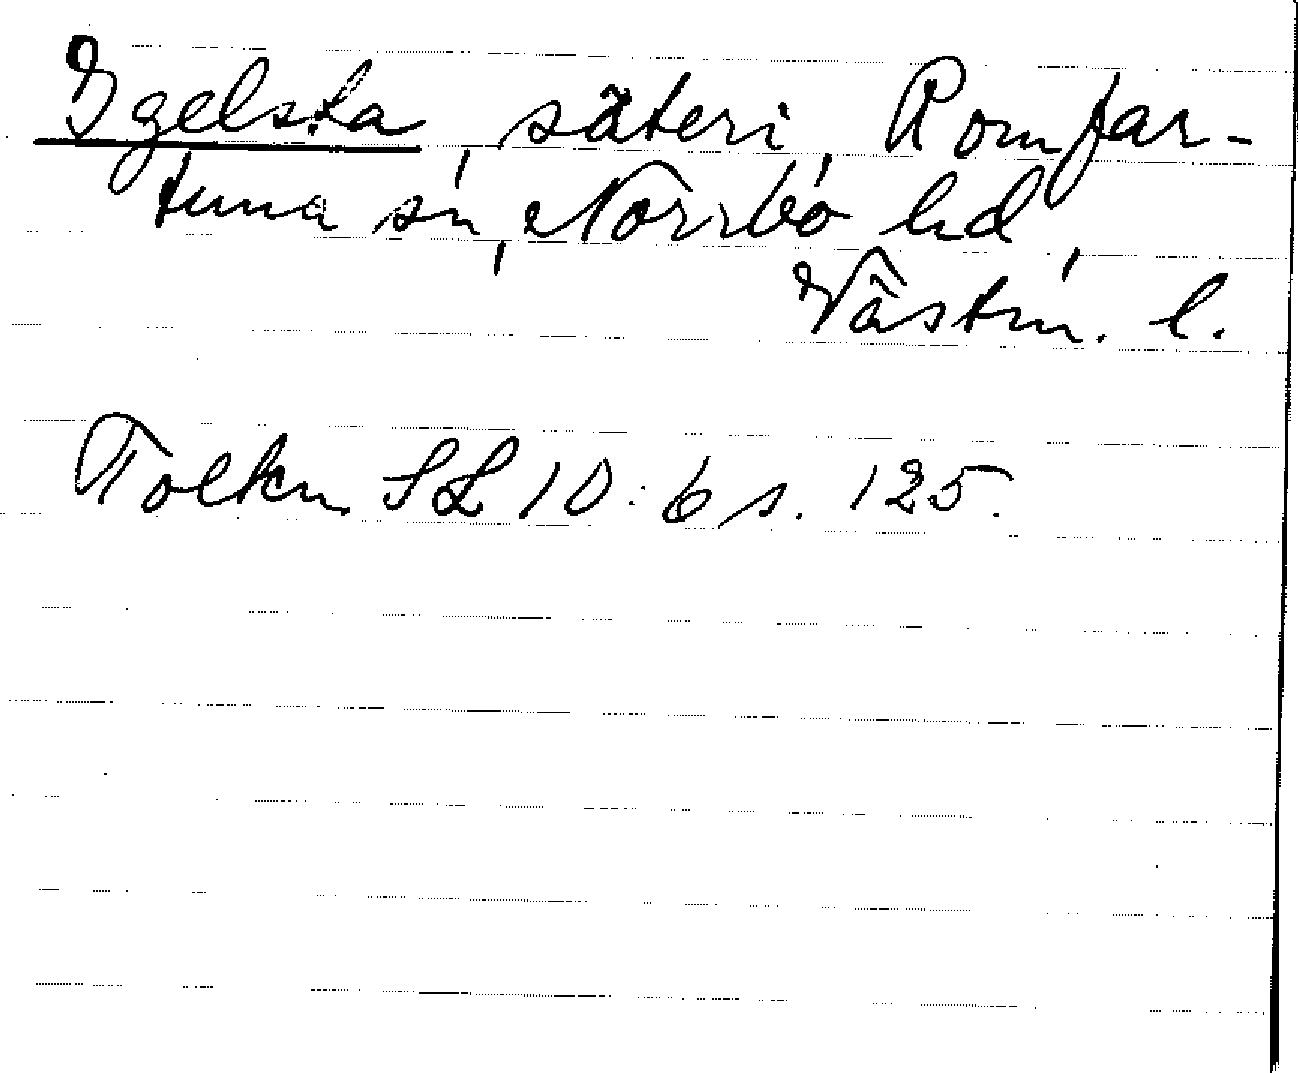 Igelsta, säteri, Romfar-
tuna sn, Norrbo hd,
Västm. l.
Tolkn SL 10:6 s. 125.